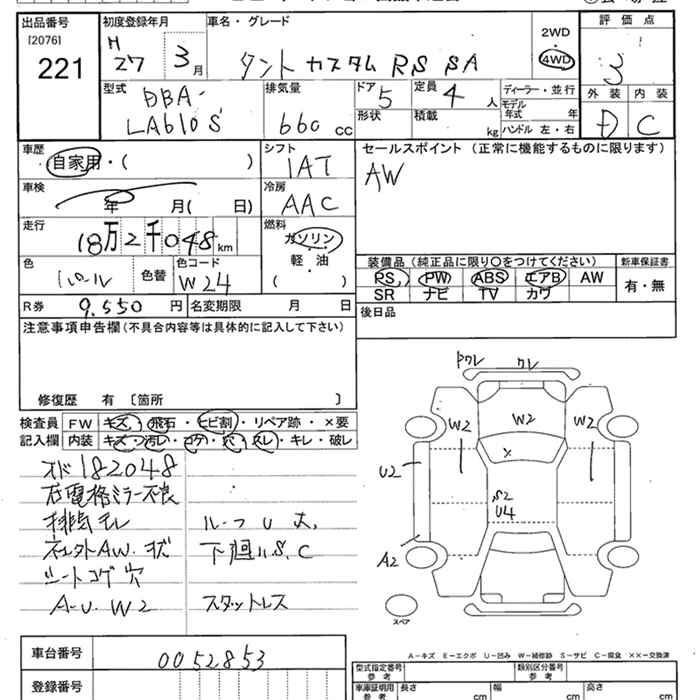 出品番号 初度登録年月 車名・グレード 評価点
[2076] H 2WD
221 27 3月 タント カスタム RS SA 4WD 3
型式 排気量 ドア 定員 ディーラー・並行 外装 内装
DBA- 5 4人 モデル年式 年
LA610S 660cc 形状 積載 kg ハンドル 左・右 D C
車歴 シフト セールスポイント (正常に機能するものに限ります)
自家用・( ) IAT AW
車検 冷房
年 月( 日) AAC
走行 燃料
18万2千048km ガソリン
軽・油
色 色替 色コード ( ) 装備品(純正品に限り○をつけてください) 新車保証書
パール W24 PS PW ABS エアB AW 有・無
SR ナビ TV カワ
R券 9,550円 名変期限 月 日 後日品
注意事項申告欄(不具合内容等は具体的に記入して下さい)
修復歴 有 〔箇所 〕
検査員 FW キズ・飛石・ヒビ割・リペア跡・×要
記入欄 内装 キズ・汚レ・コゲ・穴・スレ・キレ・破レ
オド182048
右電格ミラー不良
排気モレ ルーフU大、
下廻りS、C
シートコゲ穴
A-U、W2 スタットレス
クレ
W2 W2 W2
U2
S2
U4
A2
スペア
A-キズ E-エクボ U-凹み W-補修跡 S-サビ C-腐食 ××-交換済
車台番号 0052853
登録番号
型式指定番号 参考 類別区分番号 参考
車庫証明用 参考 長さ cm 幅 cm 高さ cm